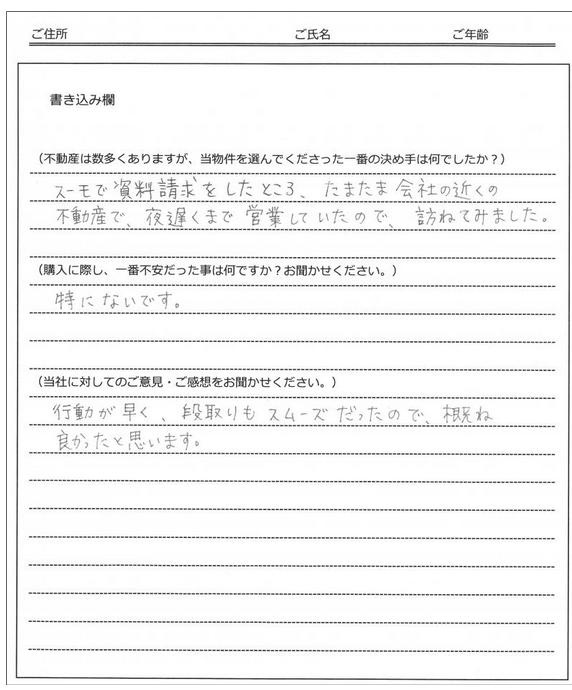 ご住所 ご氏名 ご年齢
書き込み欄
（不動産は数多くありますが、当物件を選んでくださった一番の決め手は何でしたか？）
スーモで資料請求をしたところ、たまたま会社の近くの
不動産で、夜遅くまで営業していたので、訪ねてみました。
（購入に際し、一番不安だった事は何ですか？お聞かせください。）
特にないです。
（当社に対してのご意見・ご感想をお聞かせください。）
行動が早く、段取りもスムーズだったので、概ね
良かったと思います。